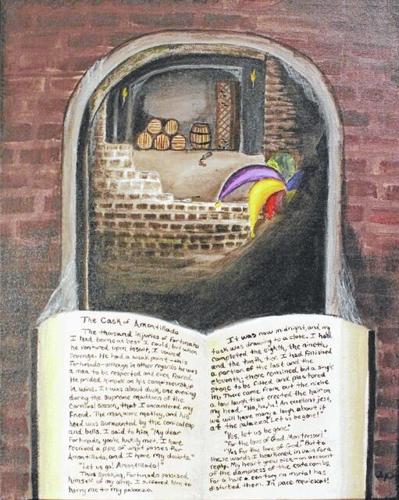 The Cask of Amontillado
The thousand injuries of Fortunato
I had borne as best I could, but when
he ventured upon insult, I vowed
revenge. He had a weak point-this
Fortunato-although in other regards he was
a man to be respected and even feared.
He prided himself on his connoisseurship
in wine. It was about dusk, one evening
during the supreme madness of the
Carnival season, that I encountered my
friend. The man wore motley, and his
head was surmounted by the conical cap
and bells. I said to him, "My dear
Fortunato, you're luckily met. I have
received a pipe of what passes for
Amontillado, and I have My doubts."
"Let us go! Amontillado!"
Thus speaking, Fortunato possessed
himself of my arm. I suffered him to
hurry me to my palazzo.
It was now midnight, and my
task was drawing to a close. I had
completed the eighth, the ninth,
and the tenth tier. I had finished
a portion of the last and the
eleventh; there remained but a single
stone to be fitted and plastered
in. There came from out the niche
a low laugh that erected the hairs on
my head. "Ha, ha, ha! An excellent jest,
we will have many a laugh about it
at the palazzo! Let us begone!"
"Yes, let us be gone."
"For the love of God, Montresor!"
"Yes For the love of God." But to
these words I hearkened in vain for a
reply. My heart grew sick-on account
of the dampness of the catacombs.
For a half a century no mortal has
disturbed them. In pace requiescat!